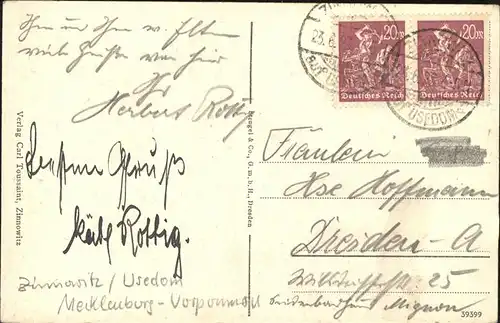 Ihnen und Ihren w. Eltern
viele Grüße von hier
Herbert Rottig
besten Gruß
Käte Rottig.
Zinnowitz / Usedom
Mecklenburg - Vorpommern
Verlag Carl Toussaint, Zinnowitz
Stengel & Co., G. m. b. H., Dresden
20 M 20 M
Deutsches Reich Deutsches Reich
23.6.
USEDOM
Fräulein
Ilse Hoffmann
Dresden-A
25
Mignon
39399